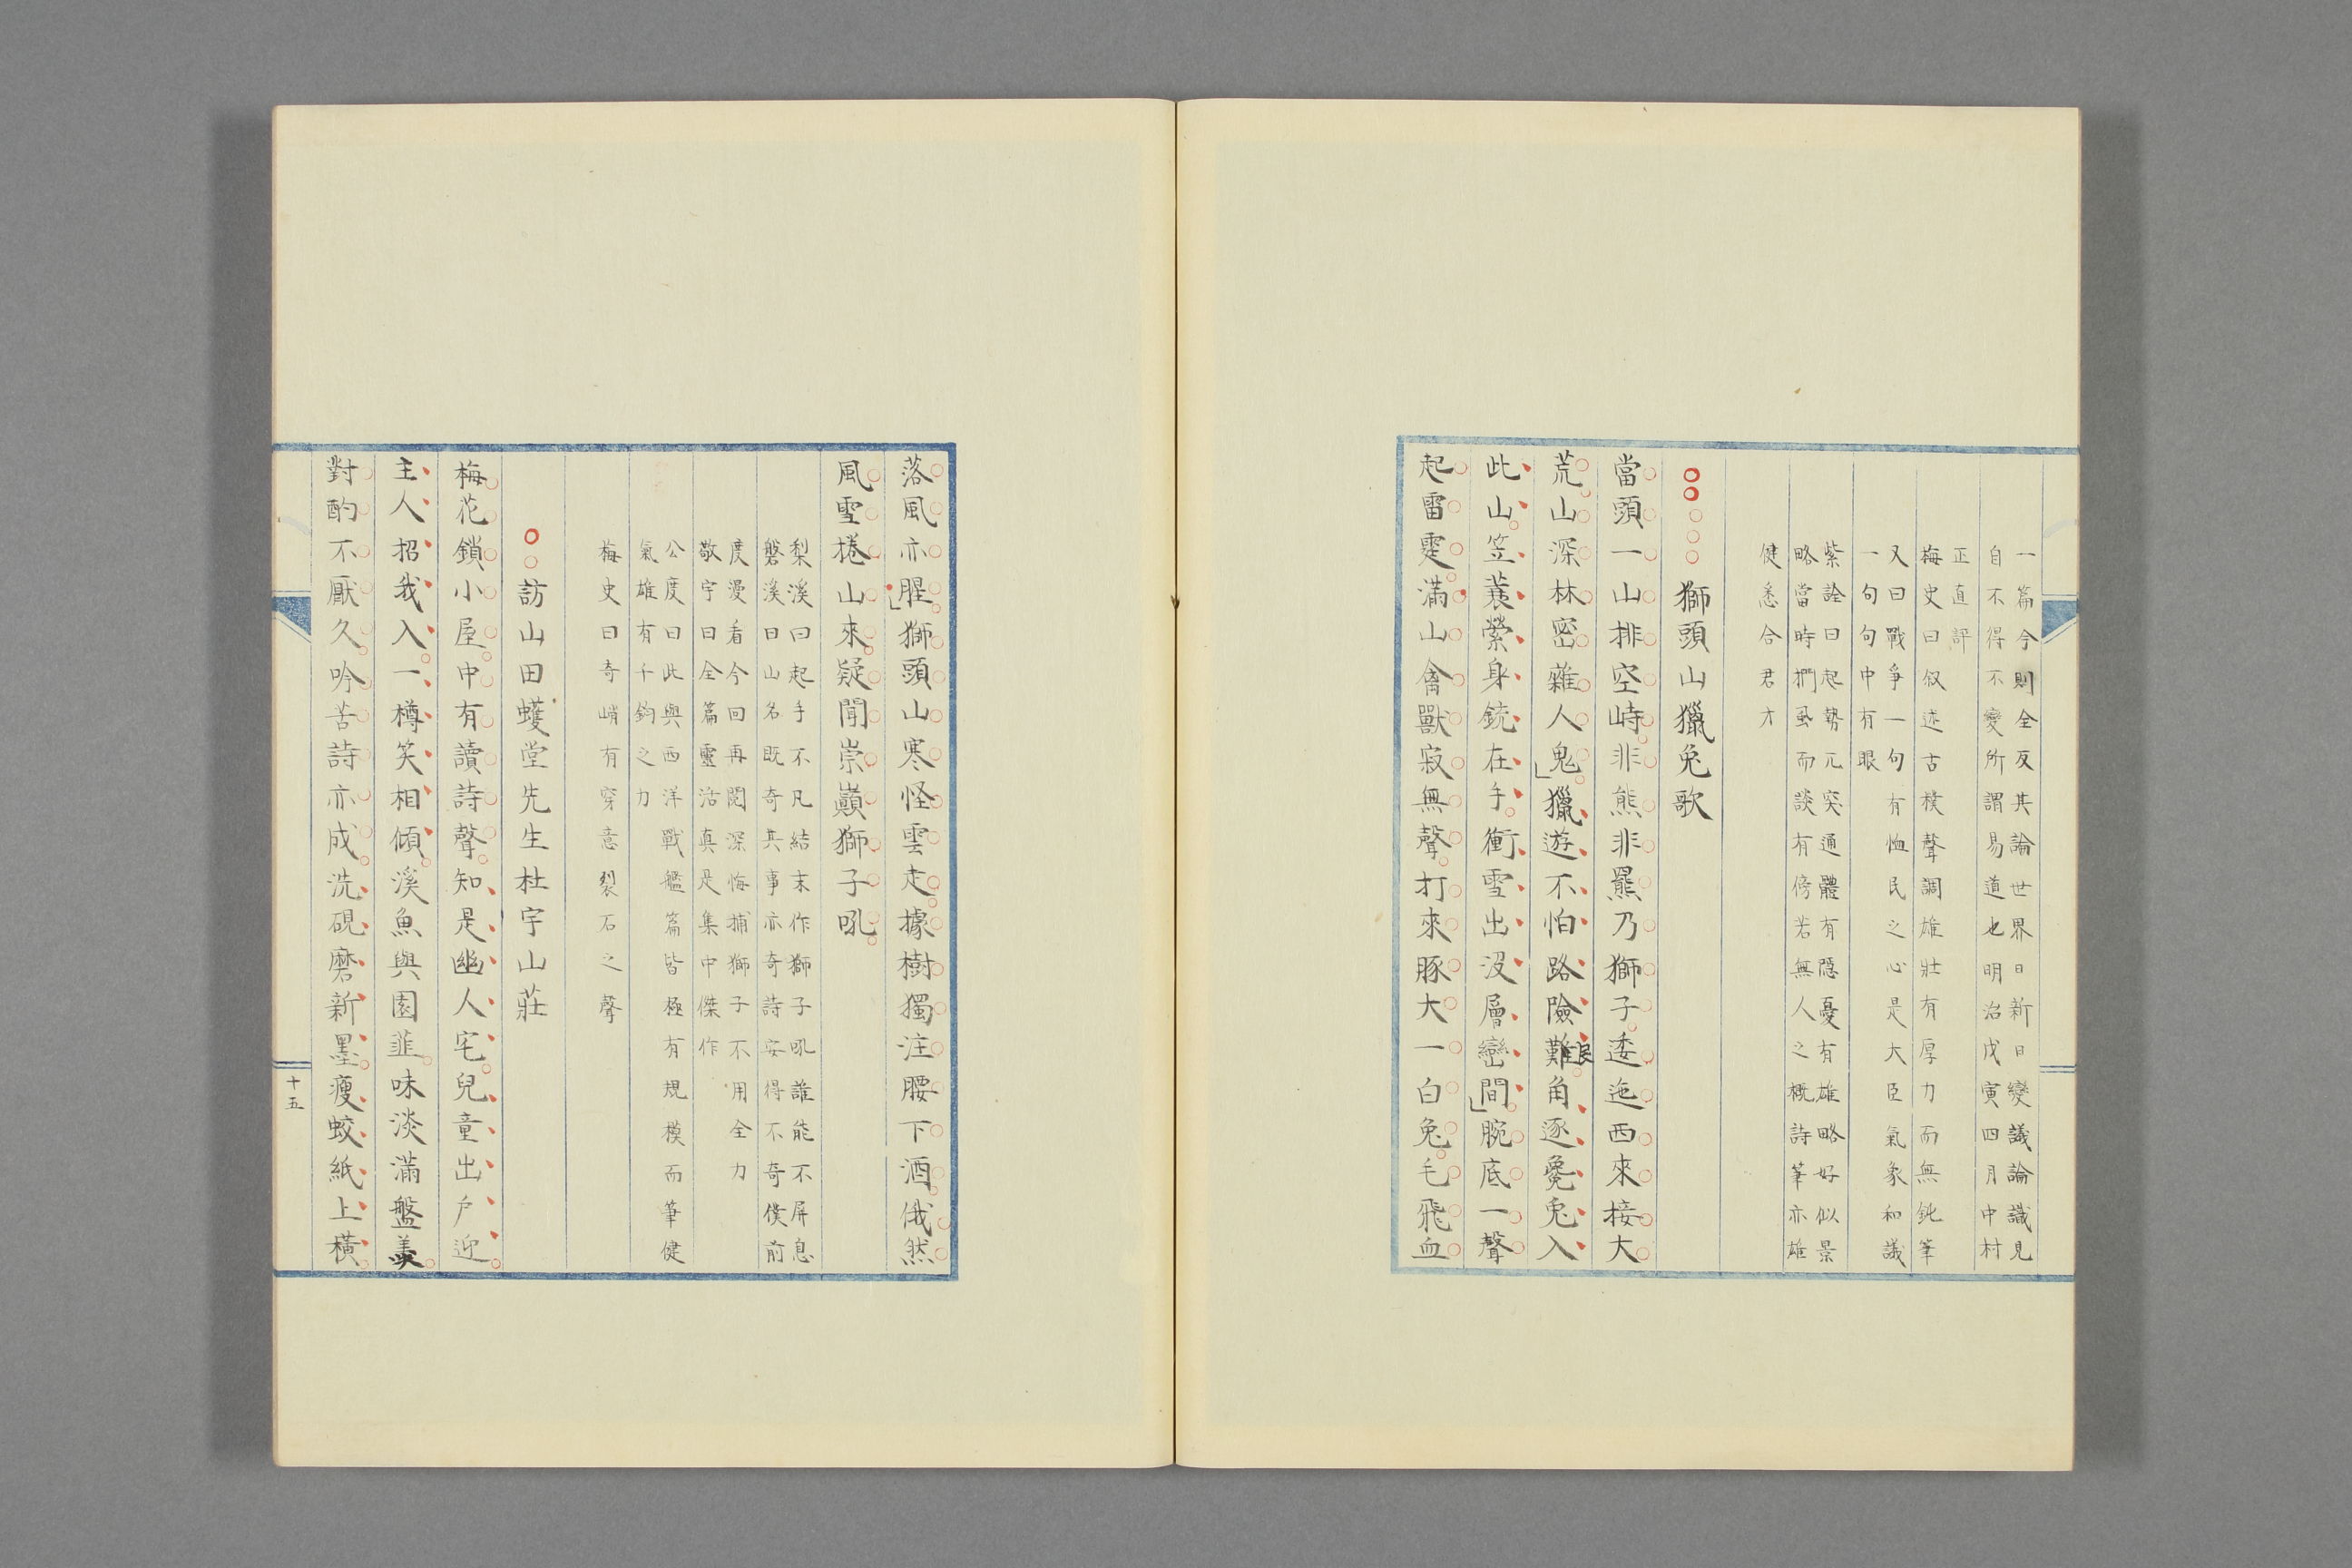 一篇今則全反其論世界日新日變議論識見
自不得不變所謂易道也明治戊寅四月中村
正直評
梅史曰叙述古樸聲調雄壯有厚力而無鈍筆
又曰戰爭一句有恤民之心是大臣氣象和議
一句句中有眼
紫詮曰起勢兀突通體有隱憂有雄略好似景
略當時捫虱而談有傍若無人之概詩筆亦雄
健悉合君才
獅頭山獵兔歌
當頭一山排空峙非熊非羆乃獅子逶迤西來接大
荒山深林密雜人鬼獵遊不怕路險艱角逐毚兔入
此山笠蓑縈身銃在手衝雪出沒層巒間腕底一聲
起雷霆滿山禽獸寂無聲打來豚大一白兔毛飛血
落風亦腥獅頭山寒怪雲走據樹獨注腰下酒俄然
風雪捲山來疑聞崇巔獅子吼
梨溪曰起手不凡結末作獅子吼誰能不屏息
磐溪曰山名既奇其事亦奇詩安得不奇僕前
度漫看今回再閱深悔捕獅子不用全力
敬宇曰全篇靈活真是集中傑作
公度曰此與西洋戰艦篇皆極有規模而筆健
氣雄有千鈞之力
梅史曰奇峭有穿意裂石之聲
訪山田蠖堂先生杜宇山莊
梅花鎖小屋中有讀詩聲知是幽人宅兒童出戶迎
主人招我入一樽笑相傾溪魚與園韮味淡滿盤羹
對酌不厭久吟苦詩亦成洗硯磨新墨瘦蛟紙上橫
十五